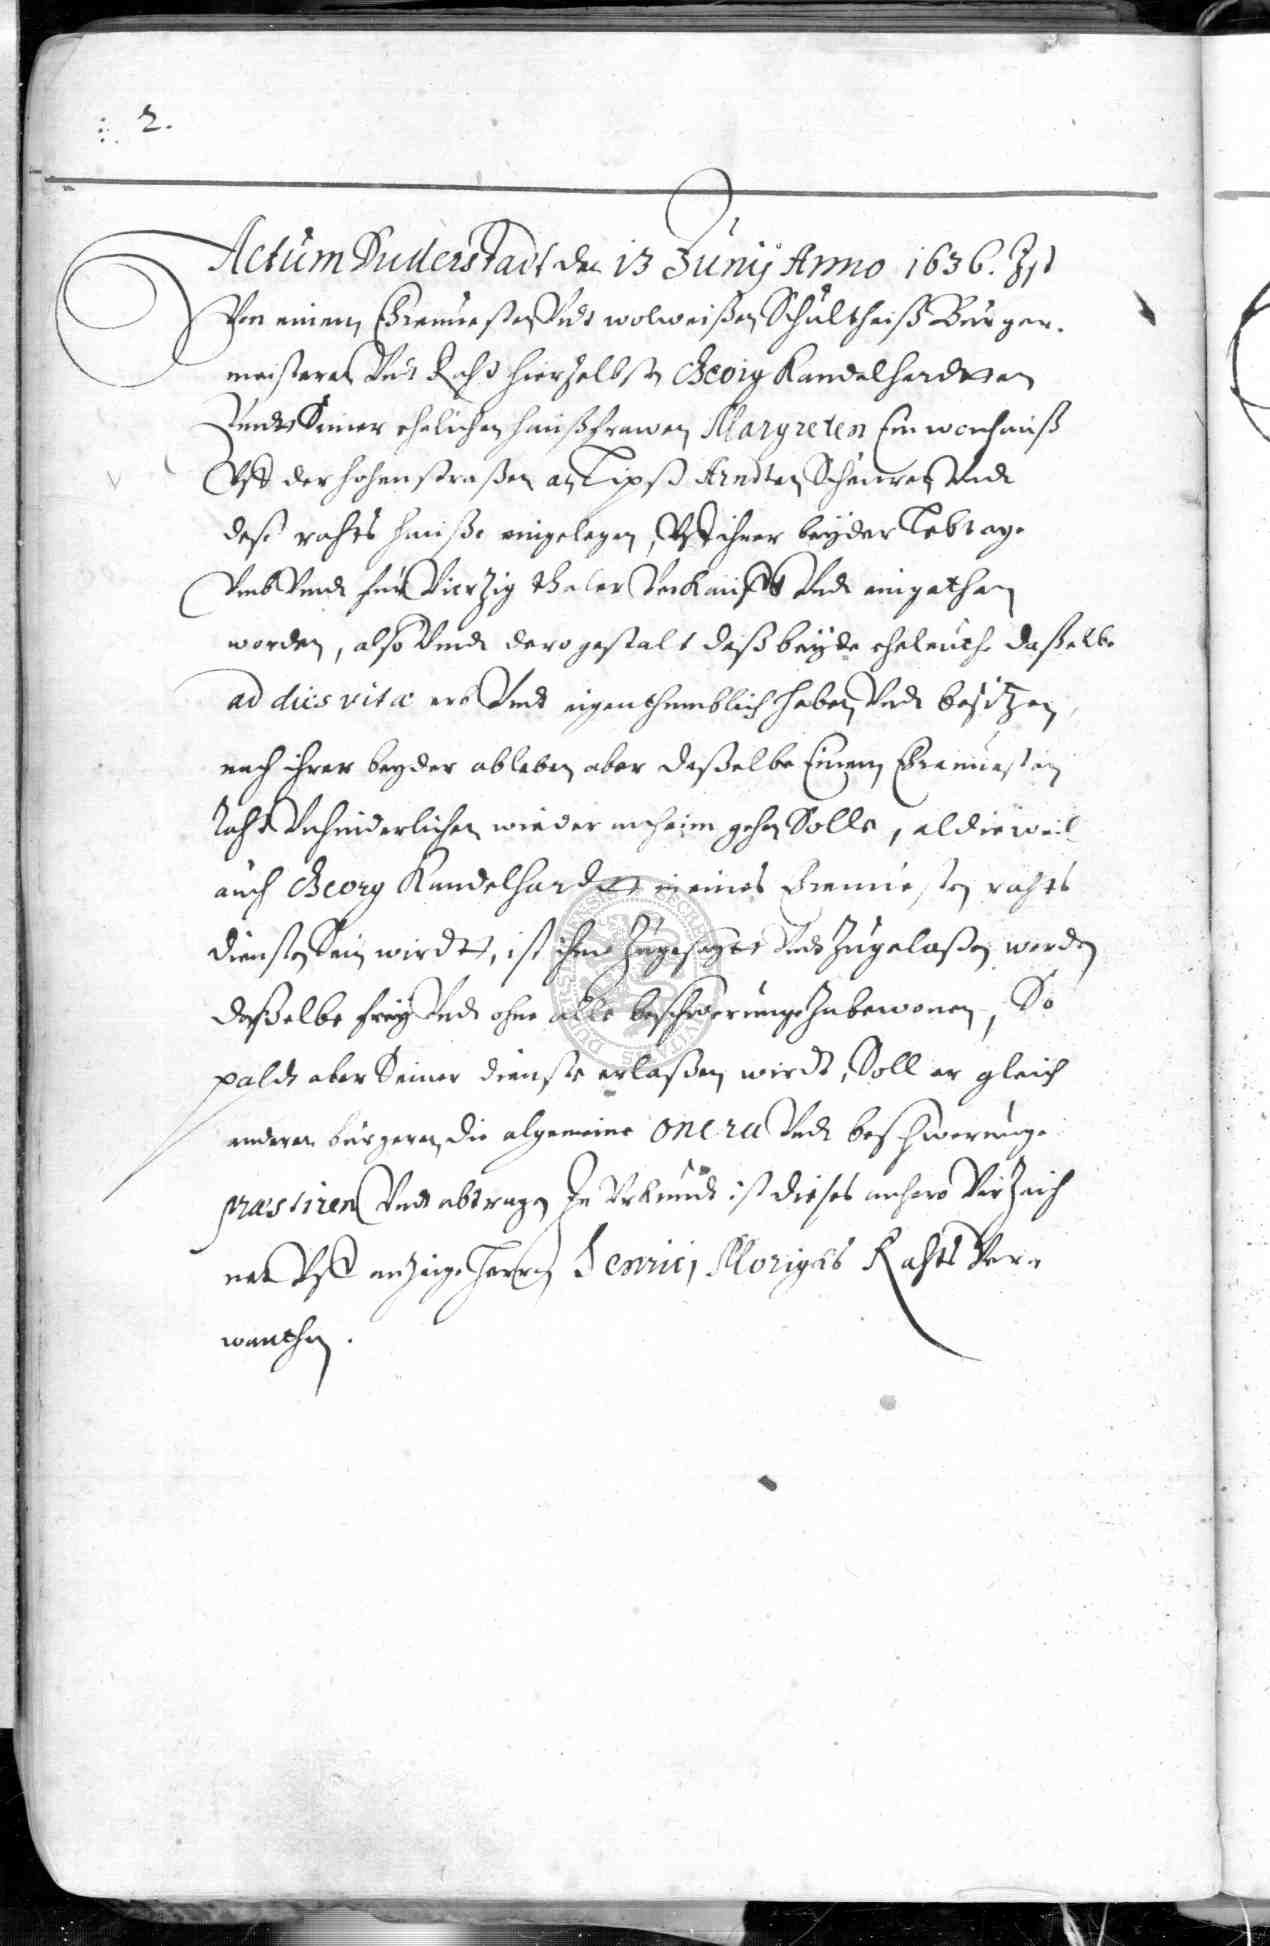 2.
Actum Duderstadt den 13 Junij Anno 1636. Ist
Von einem Ehrenuesten Vndt wolweißen Schultheiß Burger-
meisteren Vndt Raht hierselbsten Georg Kandelhardten
Vndt Seiner ehelichen haußfrawen Margreten Ein wonhauß
Vff der hohenstraßen an Tipß Arndten Scheuren Vndt
deß rahts hauße eingelegen, Vff ihrer beyder Lebtage
Vmb Vndt für Vierzig thaler Verkaufft Vndt eingethan
worden, also Vndt dero gestalt daß beyde eheleuthe daßelbe
ad dies vitæ erb Vndt eigenthumblich haben Vndt besitzen,
nach ihrer beyder ableben aber daßelbe Einem Ehrenuesten
Raht Vnhinderlichen wieder anheim gehen Solle, aldieweil
auch Georg Kandelhardt in eines Ehrenuesten rahts
diensten Sein wirdt, ist ihme Zugesagt Vndt Zugelaßen worden
daßelbe frey Vndt ohne alle beschwerunge Zubewonen, So
paldt aber Seiner dienste erlaßen wirdt, Soll er gleich
anderen burgeren die algemeine onera Vndt beschwerunge
præstiren Vndt abtragen In Vrkundt ist dieses anhero Verzeich
net Vff anzeige Herrn Henrici Rahts Ver-
wanthen.